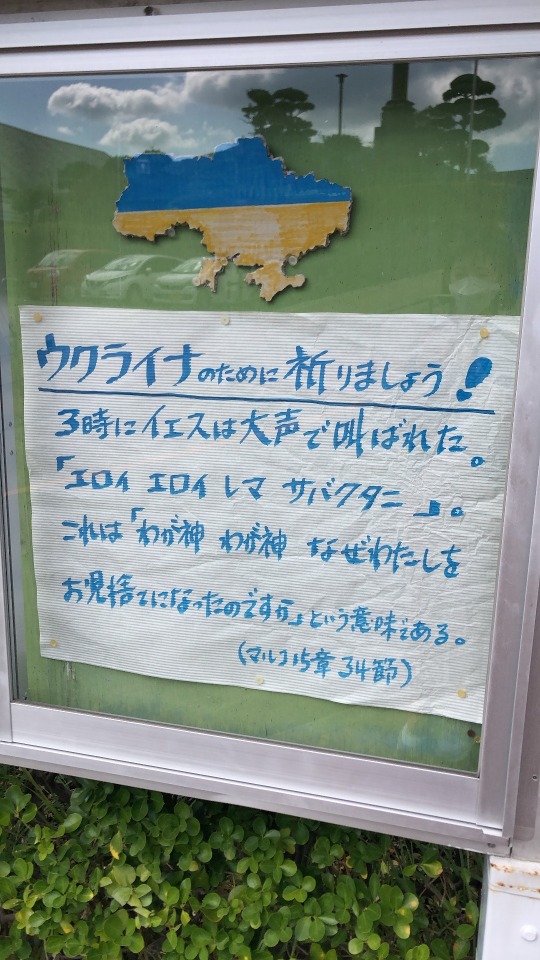 ウクライナのために祈りましょう!
3時にイエスは大声で叫ばれた。
「エロイ エロイ レマ サバクタニ」。
これは「わが神 わが神 なぜわたしを
お見捨てになったのですか」という意味である。
(マルコ15章34節)